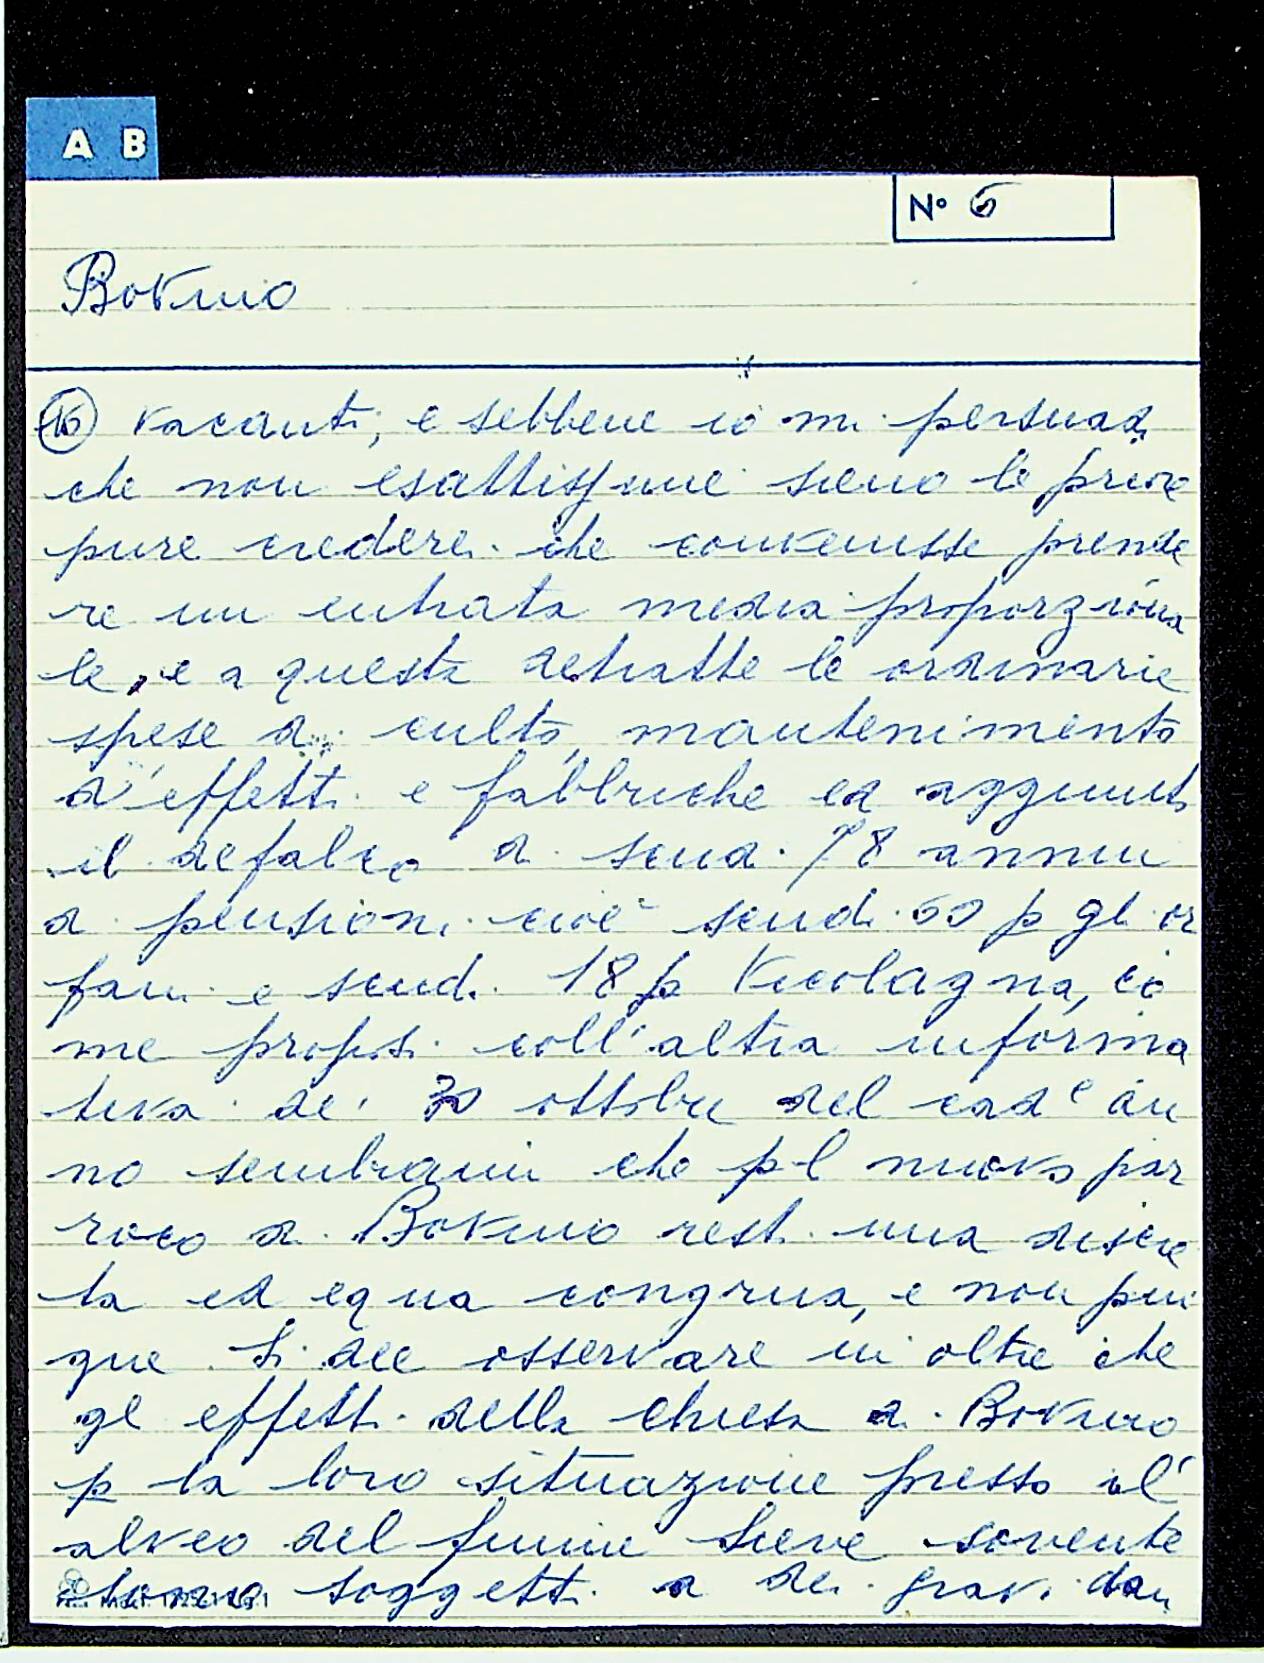 A B
N° 6
Bovino
16 vacanti, e sebbene io mi persuadi
che non esattissime sieno le prove
pure crederei che convenisse prende
re un entrata media proporziona
le, e a questa detratte le ordinarie
spese di culto, mantenimento
d'effetti e fabbriche ed aggiunto
il defalco di scudi 78 annui
di pensioni cioè scudi 60 p gli or
fani e scudi 18 p Vicolagna, co
me proposi coll'altra informa
tiva de' 30 ottobre del cade an
no sembrami che pel nuovo par
roco di Bovino resti una discre
ta ed equa congrua, e non pin
gue. Si dee osservare in oltre che
gl effetti della Chiesa di Bovino
p la loro situazione presso al'
alveo del fiume Sieve sovente
sono soggetti a dei gravi dan